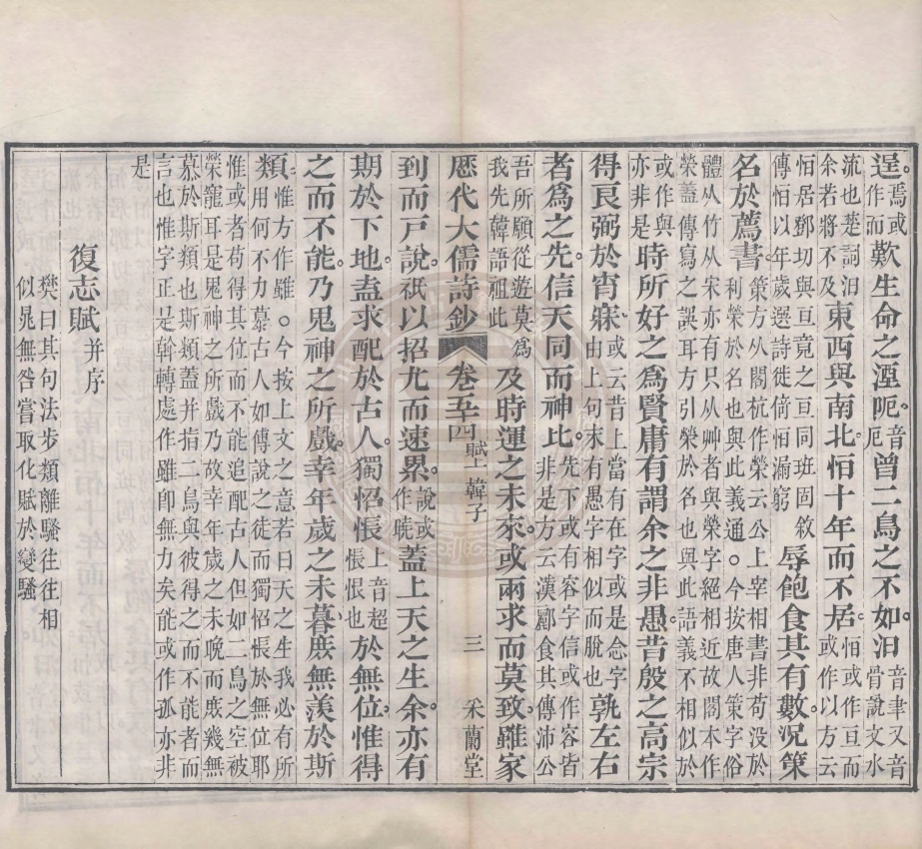 逞焉或作而歎生命之湮阨音厄曾二鳥之不如汩音聿又音骨說文水
流也楚詞汩余若將不及東西與南北怕十年而不居怕或作亘而或作以方云
怕居鄧切與亘竟之亘同班固敘傳怕以年歲選詩徙倚怕漏窮辱飽食其有數況策
名於薦書策方从閣杭作榮云公上宰相書非苟沒於利榮於名也與此義通○今按唐人策字俗
體从竹从宋亦有只从艸者與榮字絕相近故閣本作榮蓋傳寫之誤耳方引榮於名也與此語義不相似於
或作與亦非是時所好之為賢庸有謂余之非愚昔殷之高宗
得良弼於宵寐或云昔上當有在字或是念字由上句末有愚字相似而脫也孰左右
者為之先信天同而神比先下或有容字信或作容皆非是方云漢酈食其傳沛公
吾所願從遊莫為我先韓語祖此及時運之未來或兩求而莫致雖家
歷代大儒詩鈔 卷五十四 賦上 韓子 三 采蘭堂
到而戶說祇以招尤而速累說或作曉蓋上天之生余亦有
期於下地盍求配於古人獨怊悵於無位上音超悵恨也惟得
之而不能乃鬼神之所戲幸年歲之未暮庶無羨於斯
類惟方作雖○今按上文之意若曰天之生我必有所用何不力慕古人如傅說之徒而獨怊悵於無位耶
惟或者苟得其位而不能追配古人但如二鳥之空被榮寵耳是鬼神之所戲乃故幸年歲之未晚而庶幾無
慕於斯類也斯類蓋并指二鳥與彼得之而不能者而言也惟字正是斡轉處作雖卽無力矣能或作孤亦非
是
復志賦并序
樊曰其句法步類離騷往往相
似晁無咎嘗取化賦於變騷